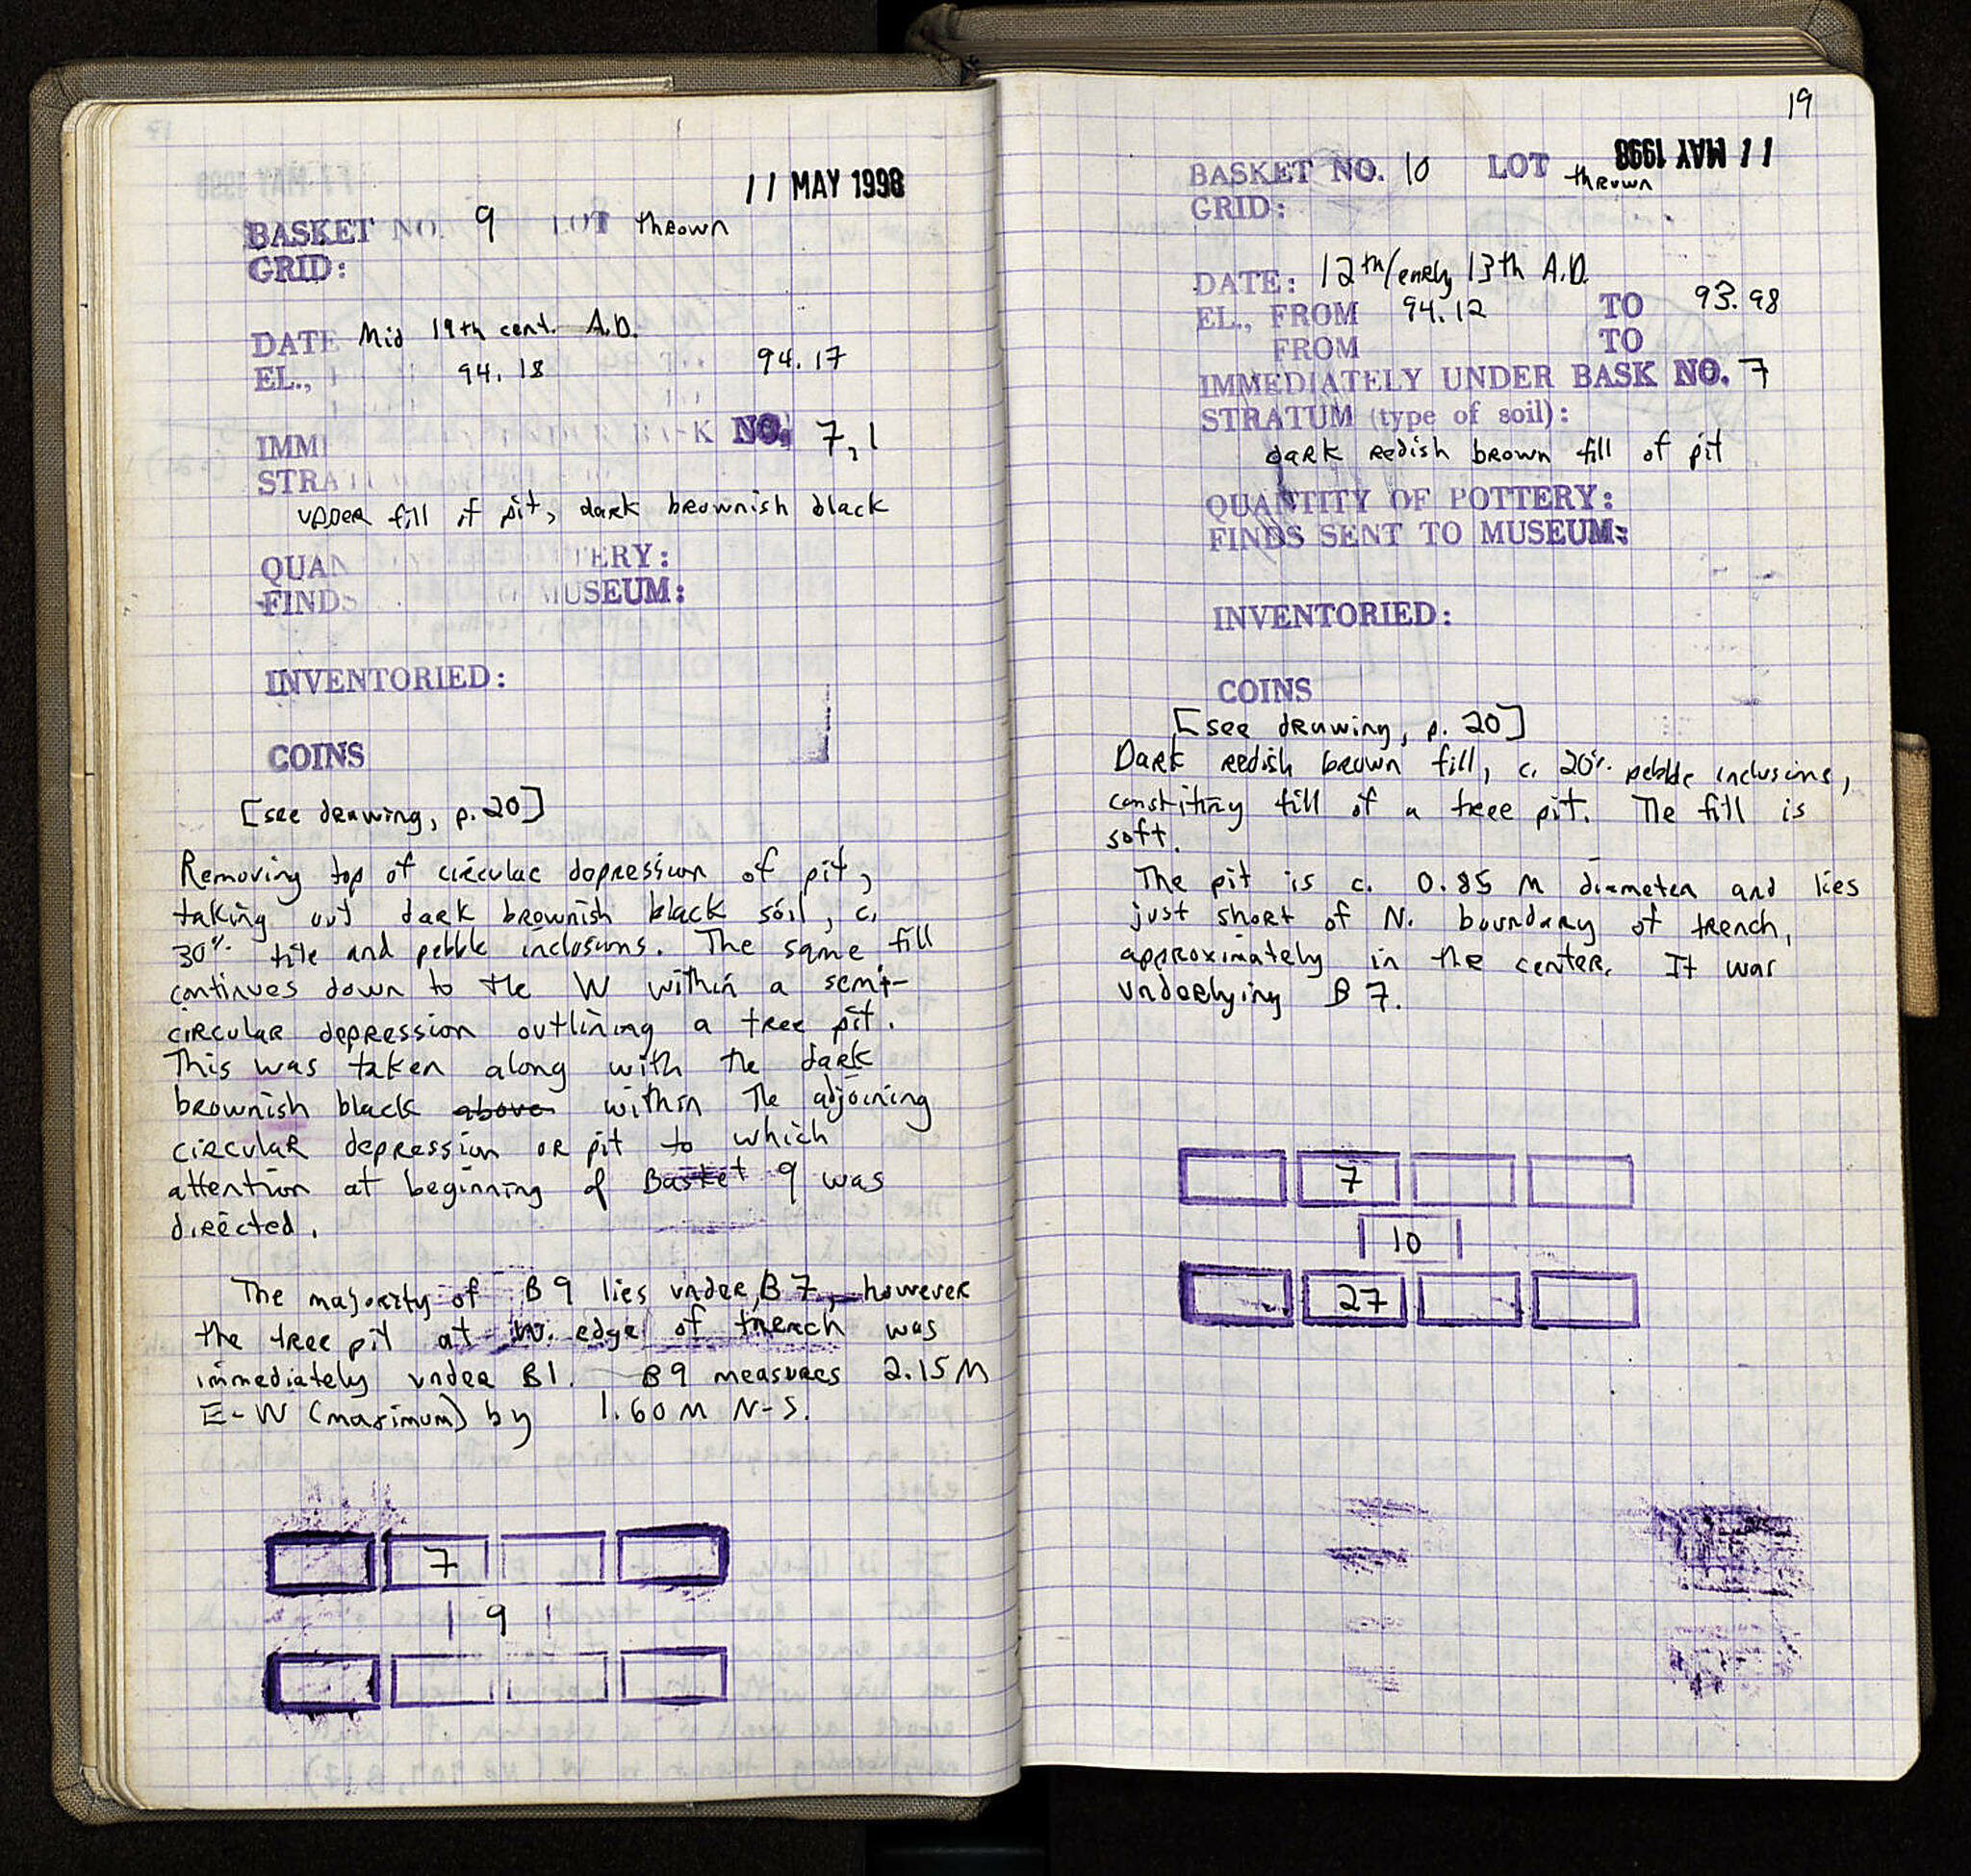 11 MAY 1998
BASKET NO. 9 LOT thrown
GRID:
DATE Mid 19th cent. A.D.
EL., 94.18 94.17
IMM NO. 7, 1
STRA
upper fill of pit, dark brownish black
QUAN TERY:
FINDS MUSEUM:
INVENTORIED:
COINS
[see drawing, p. 20]
Removing top of circular depression of pit,
taking out dark brownish black soil, c.
30% tile and pebble inclusions. The same fill
continues down to the W within a semi-
circular depression outlining a tree pit.
This was taken along with the dark
brownish black above within the adjoining
circular depression or pit to which
attention at beginning of Basket 9 was
directed.
The majority of B 9 lies under B 7, however
the tree pit at W. edge of trench was
immediately under B1. B9 measures 2.15 M
E-W (maximum) by 1.60 M N-S.
7
9
19
11 MAY 1998
BASKET NO. 10 LOT thrown
GRID:
DATE: 12th/early 13th A.D.
EL., FROM 94.12 TO 93.98
FROM TO
IMMEDIATELY UNDER BASK NO. 7
STRATUM (type of soil):
dark redish brown fill of pit
QUANTITY OF POTTERY:
FINDS SENT TO MUSEUM:
INVENTORIED:
COINS
[see drawing, p. 20]
Dark redish brown fill, c. 20% pebble inclusions,
fill of a tree pit. The fill is
soft.
The pit is c. 0.85 M diameter and lies
just short of N. boundary of trench,
approximately in the center. It was
underlying B 7.
7
10
27